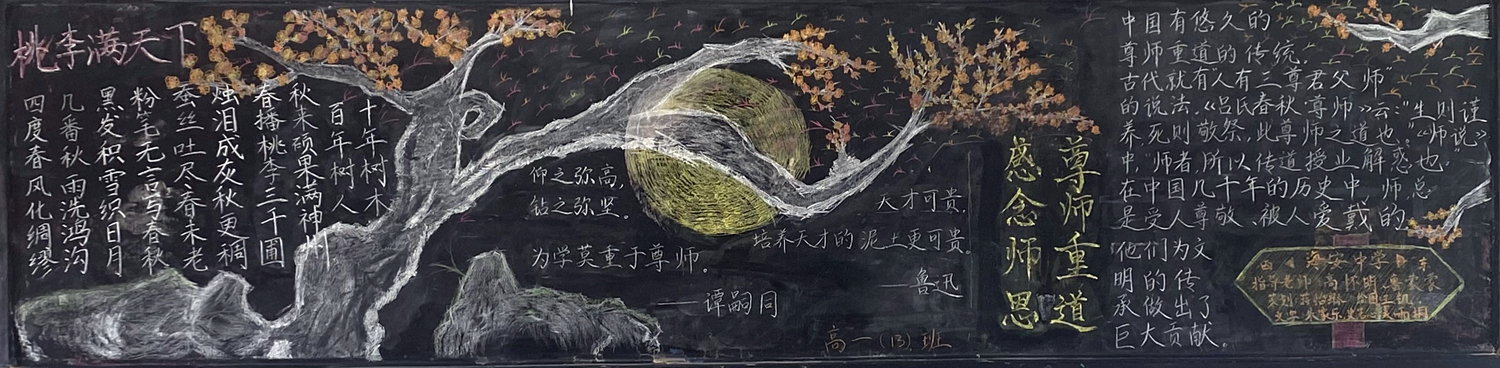 桃李满天下
十年树木
百年树人
秋来硕果满神州
春播桃李三千圃
烛泪成灰秋更稠
蚕丝吐尽春未老
粉笔无言写春秋
黑发积雪织日月
几番秋雨洗鸿沟
四度春风化绸缪
仰之弥高,
钻之弥坚。
为学莫重于尊师。
——谭嗣同
天才可贵,
培养天才的泥土更可贵。
——鲁迅
高一(13)班
尊师重道
感念师恩
中国有悠久的
尊师重道的传统,
古代就有"人有三尊君父师"
的说法,《吕氏春秋·尊师》云:"生则谨
养,死则敬祭,此尊师之道也"《师说》
中,"师者,所以传道授业解惑也,
在中国几千年的历史中,师,总
是受人尊敬、被人爱戴的
他们为文
明的传
承做出了
巨大贡献。
西 海安中学 东
指导老师